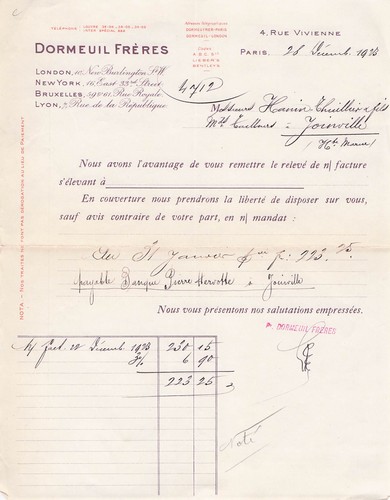 TÉLÉPHONE
LOUVRE
INTER SPÉCIAL
Adresses Télégraphiques:
DORMEUFRÈR-PARIS
DORMEUIL-LONDON
Codes
A.B.C. 5th
LIEBER'S
BENTLEY'S
4, RUE VIVIENNE
DORMEUIL FRÈRES
PARIS, 28 Décemb. 1923
LONDON, 10, New Burlington St W.
NEW YORK, 16, East 33rd Street
BRUXELLES, 59 & 61, Rue Royale
LYON, 7, Rue de la République
4712
Messieurs Hanin Thuillier & fils
Md Tailleurs à Joinville
(Hte Marne)
NOTA — NOS TRAITES NE FONT PAS DÉROGATION AU LIEU DE PAIEMENT
Nous avons l'avantage de vous remettre le relevé de n/ facture
s'élevant à
En couverture nous prendrons la liberté de disposer sur vous,
sauf avis contraire de votre part, en n/ mandat :
Au 31 Janvier f: 223.25
payable Banque Pierre à Joinville
Nous vous présentons nos salutations empressées.
DORMEUIL FRÈRES
N/ Fact. 22 Décemb 1923 230 15
3% 6 90
223 25
Noté